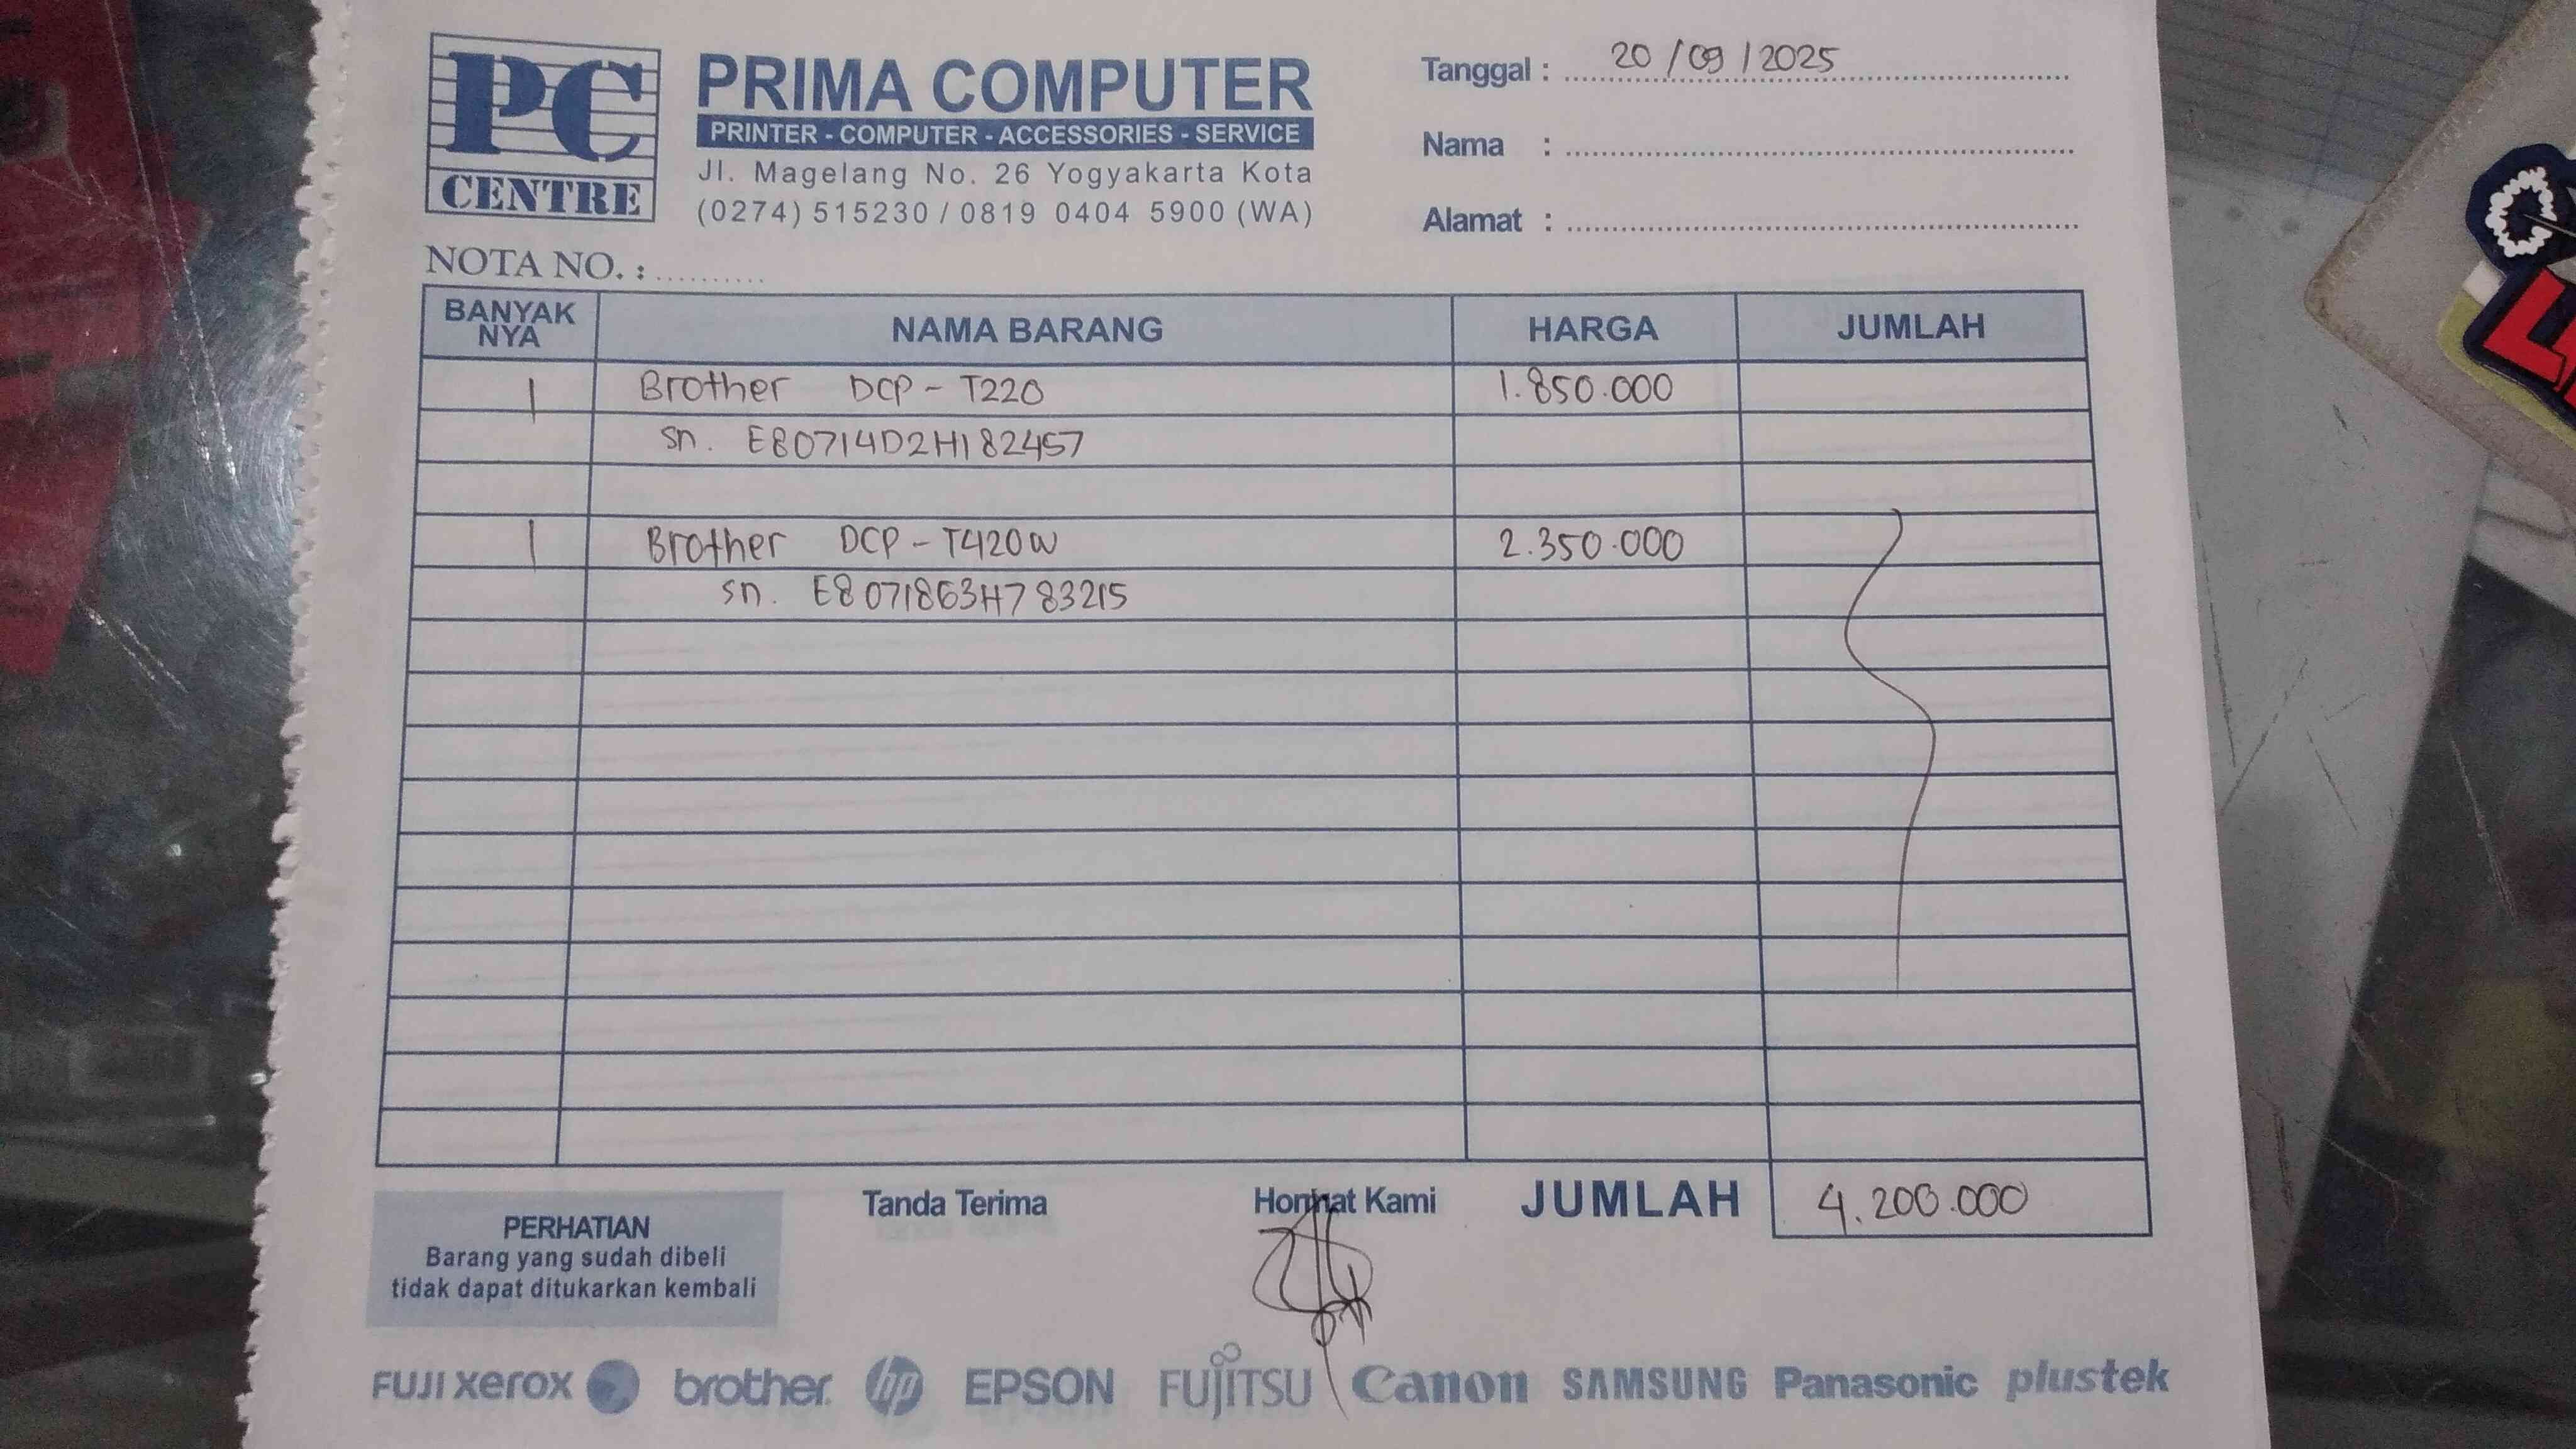 PC
CENTRE
PRIMA COMPUTER
PRINTER - COMPUTER - ACCESSORIES - SERVICE
Jl. Magelang No. 26 Yogyakarta Kota
(0274) 515230 / 0819 0404 5900 (WA)
Tanggal : 20 / 09 / 2025
Nama :
Alamat :
NOTA NO. :
BANYAK NYA NAMA BARANG HARGA JUMLAH
1 Brother DCP - T220 1.850.000
sn. E80714D2H182457
1 Brother DCP - T420W 2.350.000
sn. E8071863H783215
PERHATIAN
Barang yang sudah dibeli
tidak dapat ditukarkan kembali
Tanda Terima
Hormat Kami
JUMLAH 4.200.000
FUJI xerox brother hp EPSON FUJITSU Canon SAMSUNG Panasonic plustek